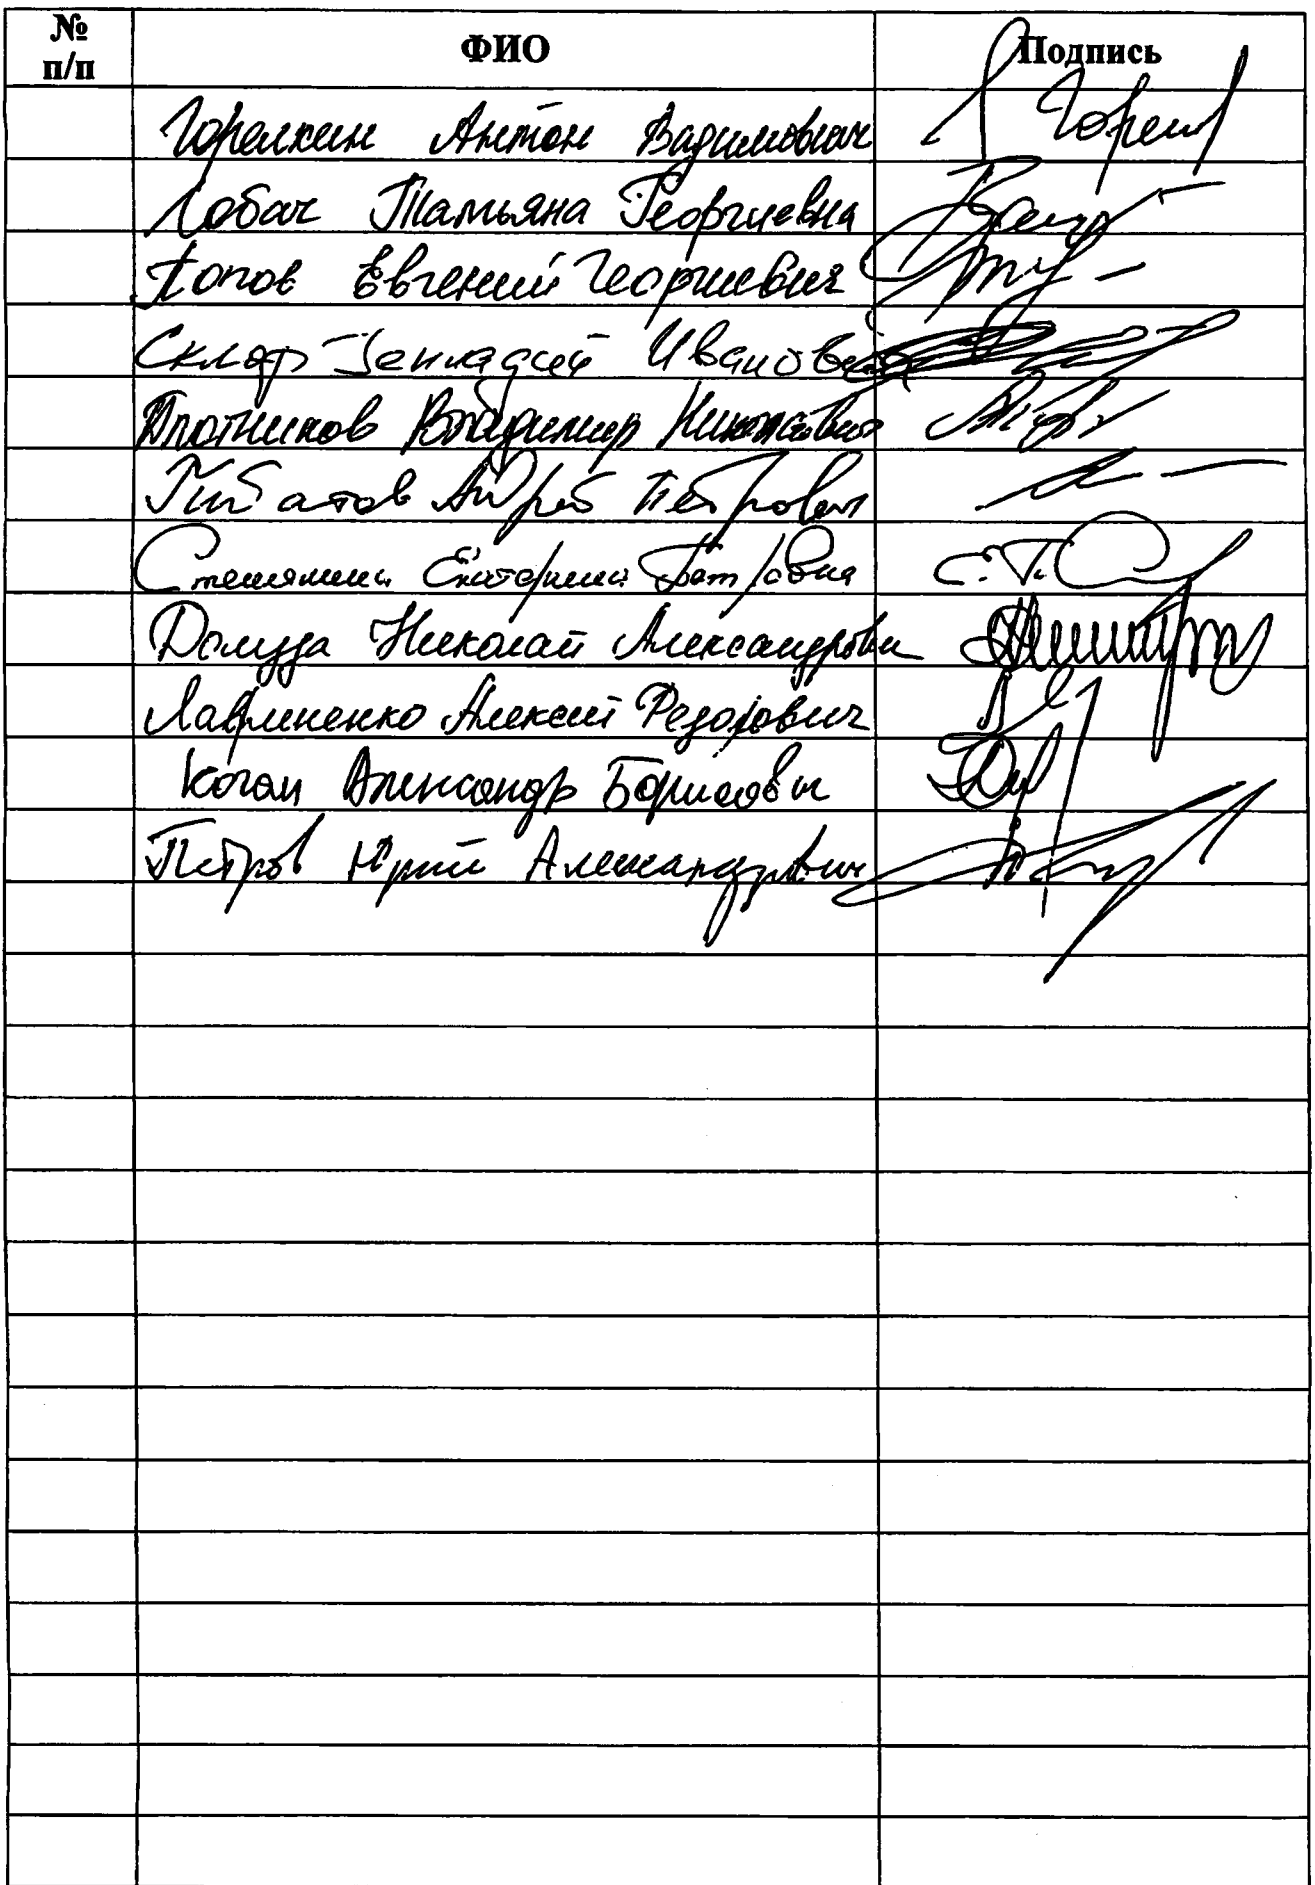 № п/п ФИО Подпись
Горелкин Антон Вадимович Горел
Лобач Татьяна Георгиевна
Попов Евгений Георгиевич
Скляр Геннадий Иванович
Плотников Владимир Николаевич
Андрей Петрович
Екатерина Петровна С.П.
Долуда Николай Александрович
Лавриненко Алексей Федорович
Коган Александр Борисович
Петров Юрий Александрович